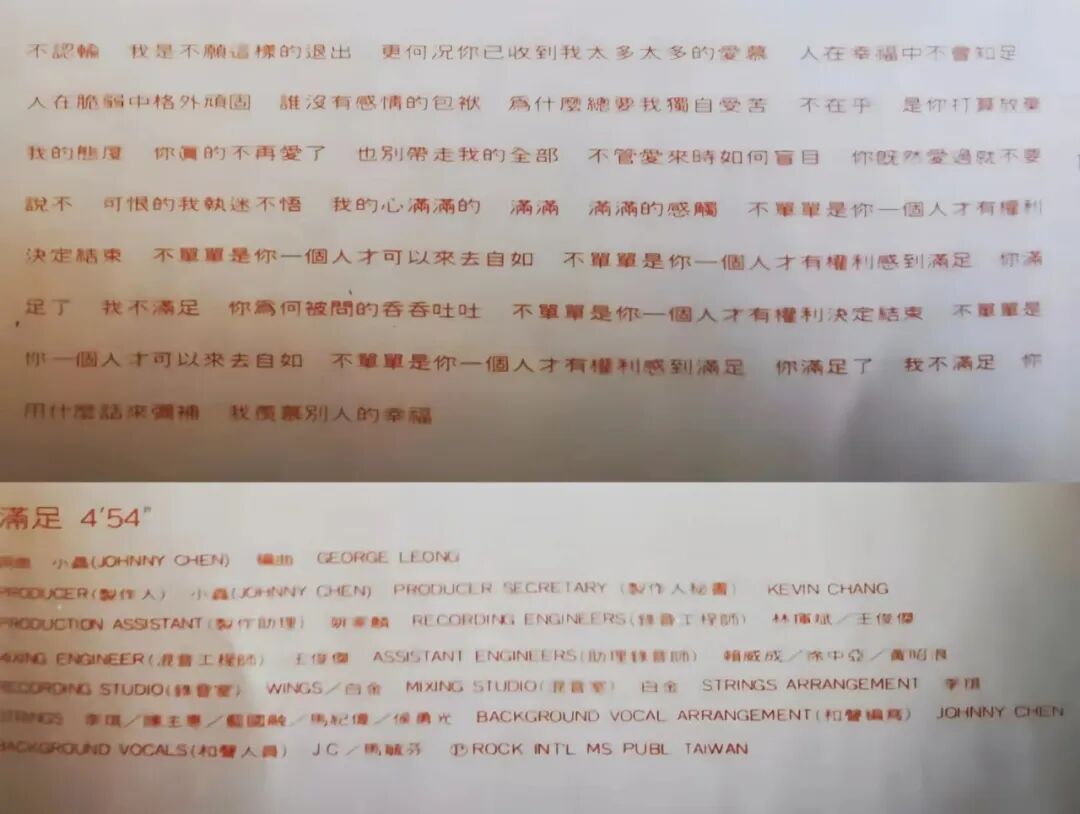 不認輸 我是不願這樣的退出 更何況你已收到我太多太多的愛慕 人在幸福中不會知足
人在脆弱中格外頑固 誰沒有感情的包袱 為什麼總要我獨自受苦 不在乎 是你打算放棄
我的態度 你真的不再愛了 也別帶走我的全部 不管愛來時如何盲目 你既然愛過就不要
說不 可恨的我執迷不悟 我的心滿滿的 滿滿 滿滿的感觸 不單單是你一個人才有權利
決定結束 不單單是你一個人才可以來去自如 不單單是你一個人才有權利感到滿足 你滿
足了 我不滿足 你為何被問的吞吞吐吐 不單單是你一個人才有權利決定結束 不單單是
你一個人才可以來去自如 不單單是你一個人才有權利感到滿足 你滿足了 我不滿足 你
用什麼話來彌補 我羨慕別人的幸福
滿足 4'54"
小蟲(JOHNNY CHEN) 編曲 GEORGE LEONG
PRODUCER(製作人) 小蟲(JOHNNY CHEN) PRODUCER SECRETARY (製作人秘書) KEVIN CHANG
PRODUCTION ASSISTANT(製作助理) RECORDING ENGINEERS(錄音工程師) 王俊傑
MIXING ENGINEER(混音工程師) 王俊傑 ASSISTANT ENGINEERS(助理錄音師) 賴威成／徐中亞／黃昭良
RECORDING STUDIO(錄音室) WINGS／白金 MIXING STUDIO(混音室) 白金 STRINGS ARRANGEMENT 李琪
STRINGS 李琪／陳主惠／藍國融／馬紀偉／侯勇光 BACKGROUND VOCAL ARRANGEMENT(和聲編寫) JOHNNY CHEN
BACKGROUND VOCALS(和聲人員) J C／馬毓芬 Ⓟ ROCK INT'L MS PUBL TAIWAN